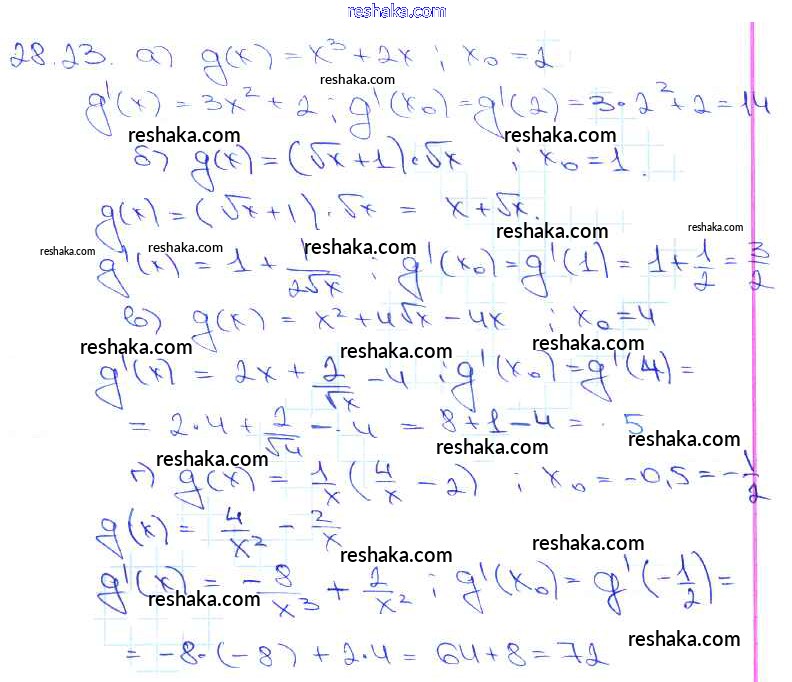 reshaka.com
28.23. а) g(x) = x³ + 2x ; x₀ = 2
reshaka.com
g'(x) = 3x² + 2 ; g'(x₀) = g'(2) = 3·2² + 2 = 14
reshaka.com reshaka.com
б) g(x) = (√x + 1)·√x ; x₀ = 1.
g(x) = (√x + 1)·√x = x + √x.
reshaka.com reshaka.com reshaka.com reshaka.com reshaka.com
g'(x) = 1 + 1/(2√x) ; g'(x₀) = g'(1) = 1 + 1/2 = 3/2
в) g(x) = x² + 4√x - 4x ; x₀ = 4
reshaka.com reshaka.com reshaka.com reshaka.com
g'(x) = 2x + 2/√x - 4 ; g'(x₀) = g'(4) =
= 2·4 + 2/√4 - 4 = 8 + 1 - 4 = 5
reshaka.com reshaka.com reshaka.com
г) g(x) = 1/x (4/x - 2) ; x₀ = -0,5 = -1/2
g(x) = 4/x² - 2/x
reshaka.com reshaka.com
g'(x) = -8/x³ + 2/x² ; g'(x₀) = g'(-1/2) =
reshaka.com reshaka.com
= -8·(-8) + 2·4 = 64 + 8 = 72